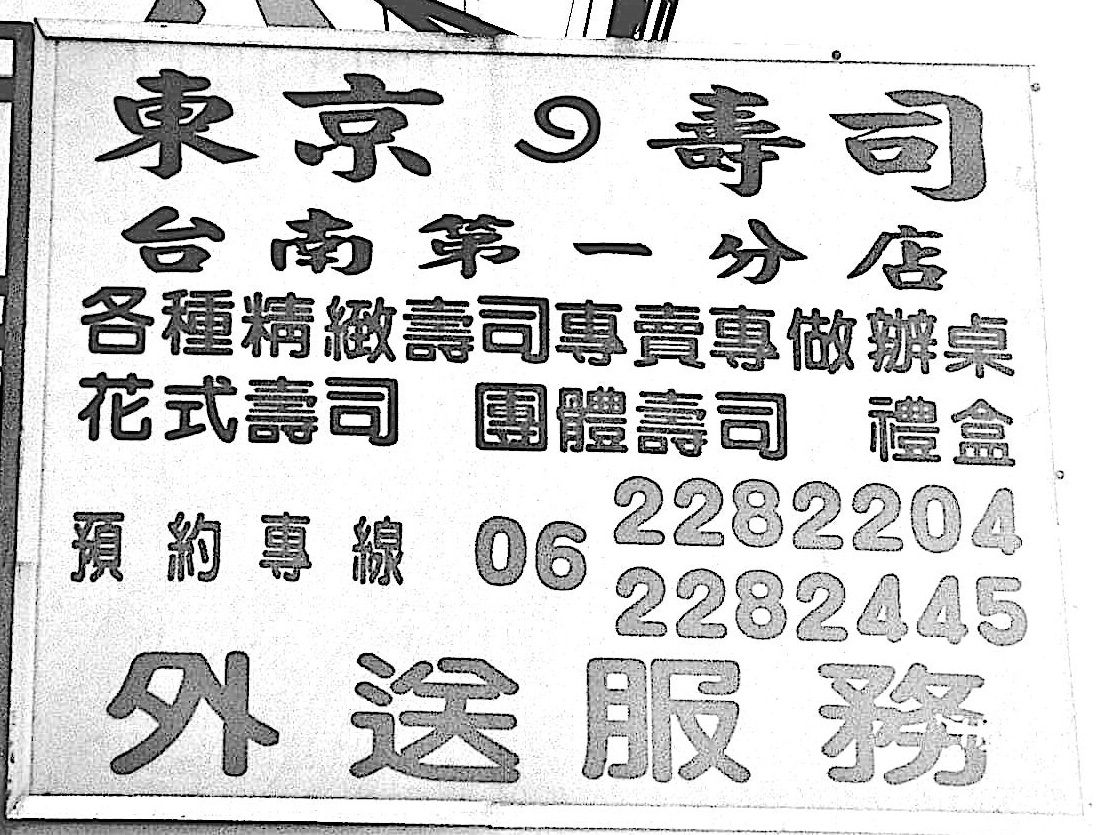 東京の壽司
台南第一分店
各種精緻壽司專賣專做辦桌
花式壽司 團體壽司 禮盒
預約專線 06 2282204
2282445
外送服務